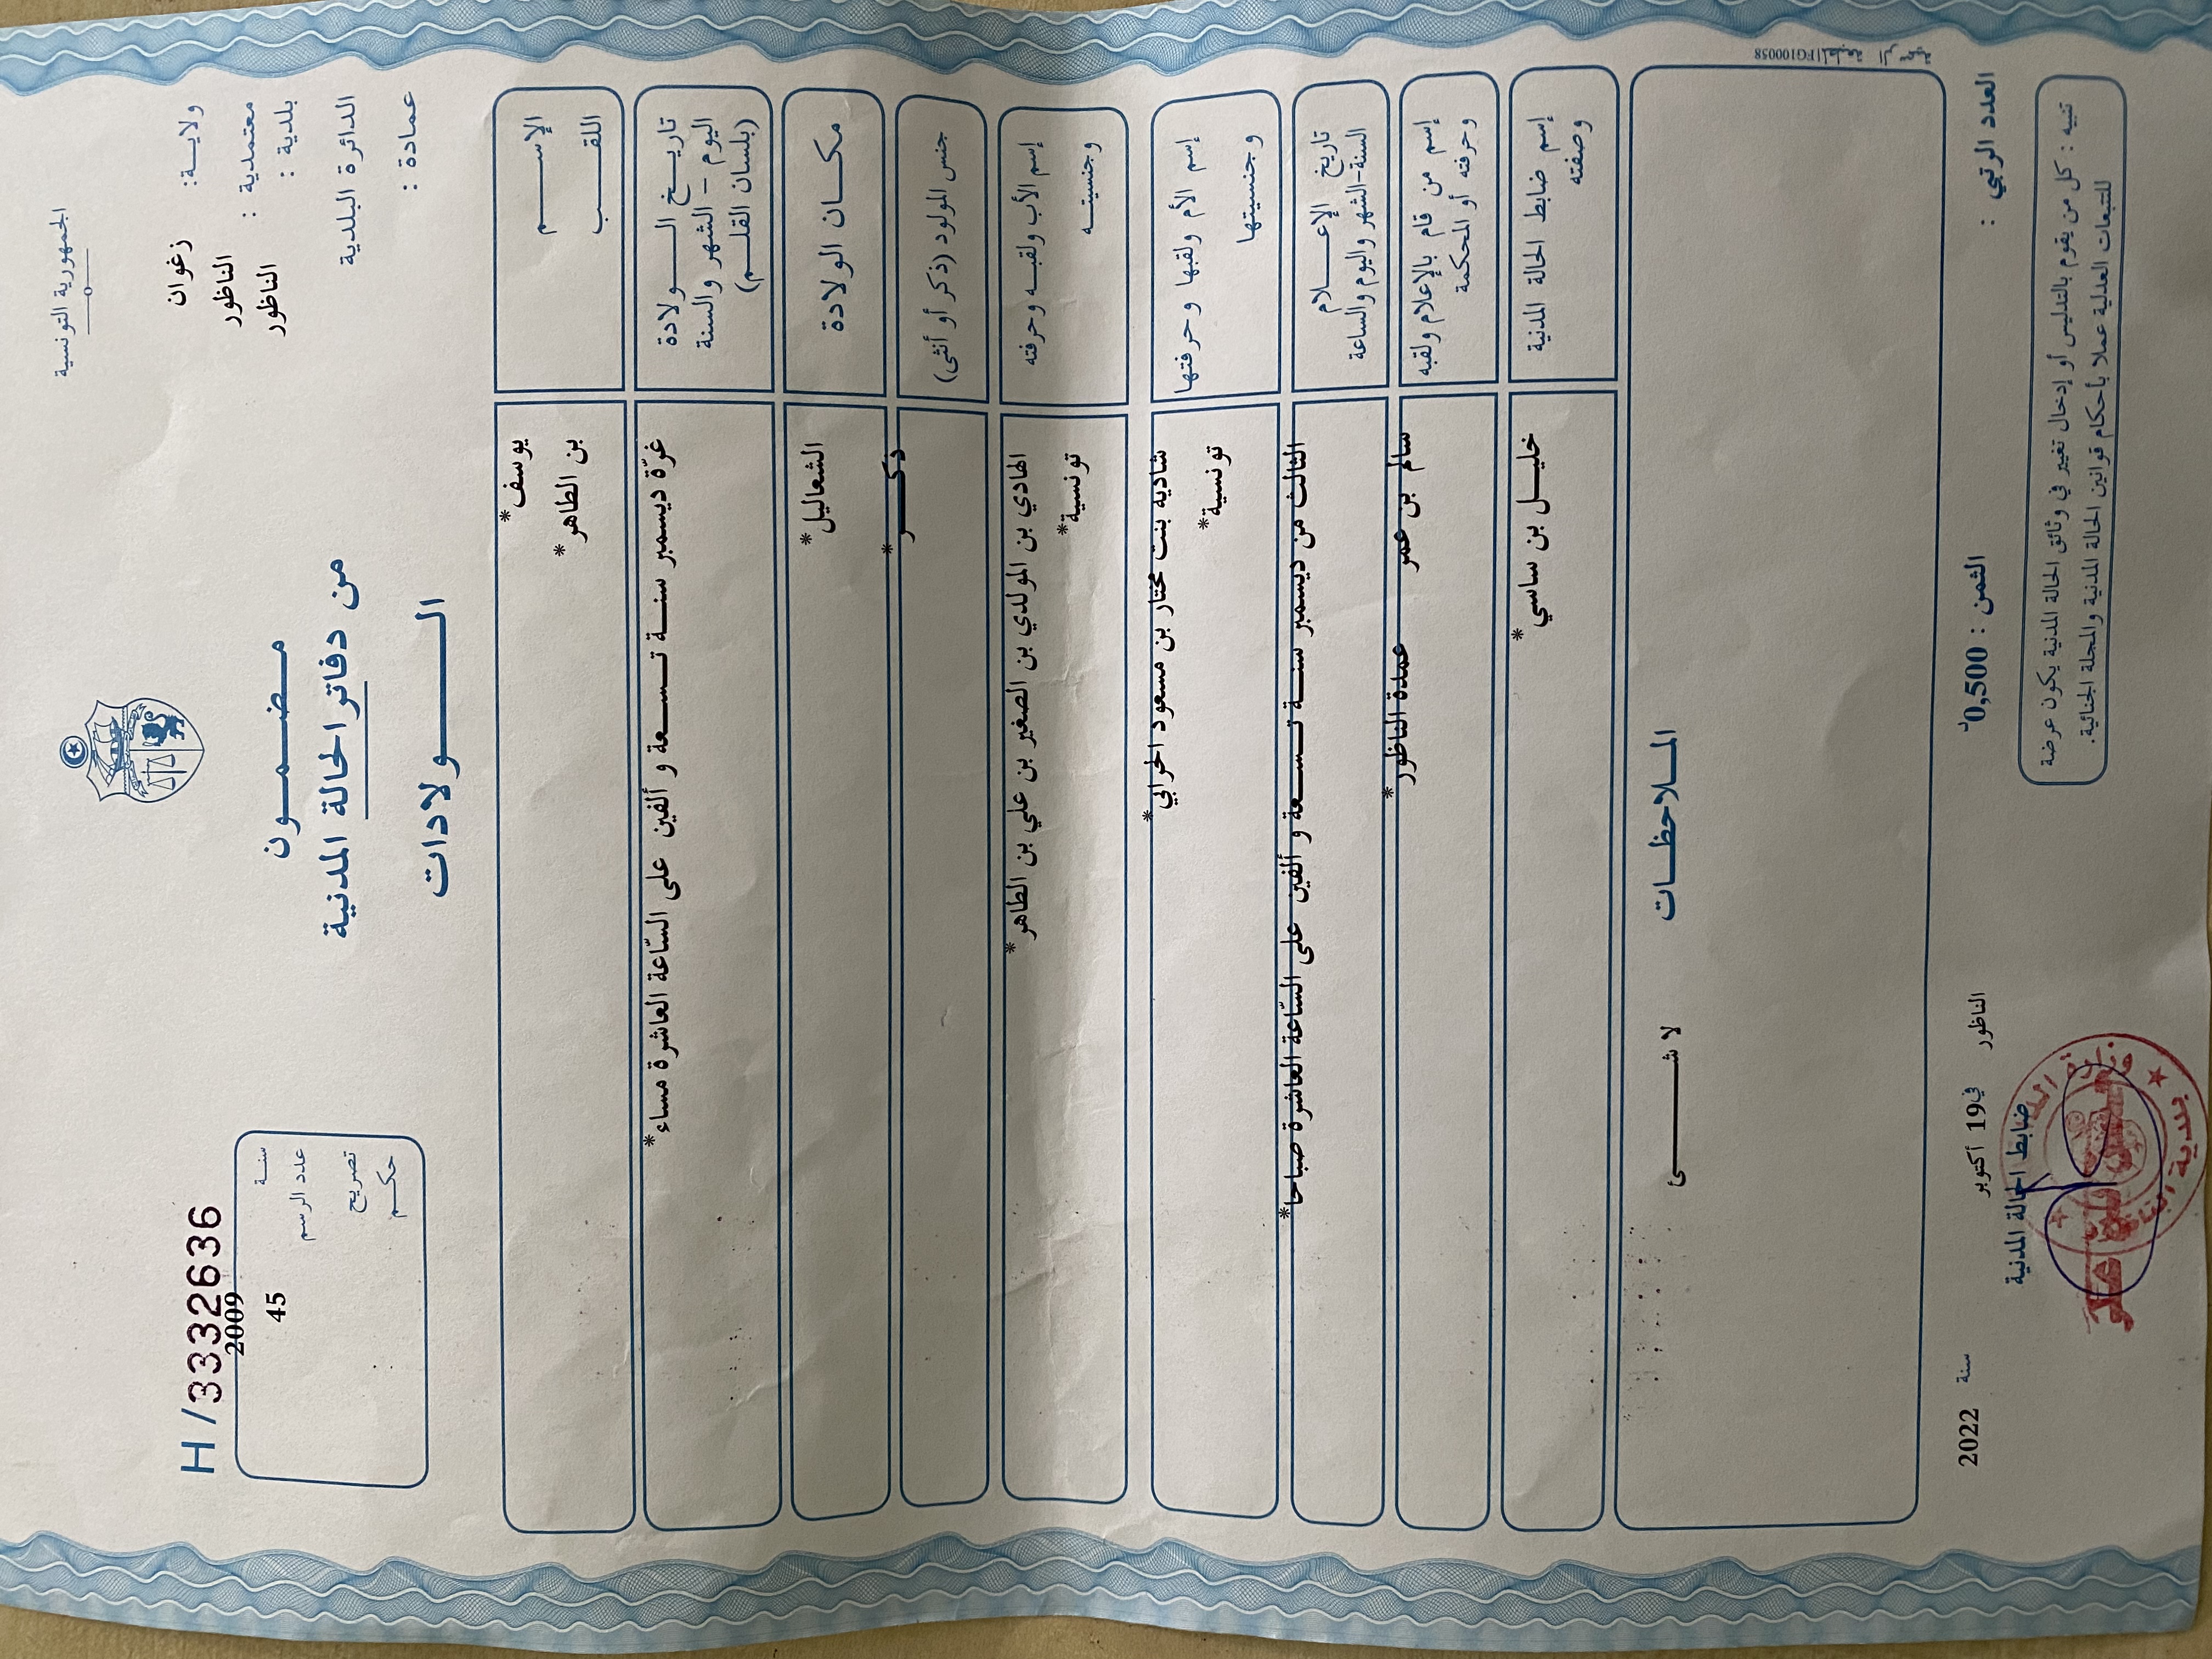 الجمهورية التونسية
ولايـــة: زغوان
معتمدية : الناظور
بلدية : الناظور
الدائرة البلدية
عمادة :
مـضـمـــون
من دفاتر الحالة المدنية
الــــولادات
H/3332636
سنـــة 2009
عدد الرسم 45
تصريح
حكـــم
الإســـــم يوسف*
اللقـــــب بن الطاهر*
تاريـــخ الـــــولادة
اليوم - الشهر والسنة
(بلسان القلـــم)
غرّة ديسمبر سنـــة تـســـعة و ألفين على السّاعة العاشرة مساء*
مكـــان الولادة الشعاليل*
جنس المولود (ذكر أو أنثى) ذكـــــر*
إسم الأب ولقبـــه وحرفته الهادي بن المولدي بن الصغير بن علي بن الطاهر*
وجنسيتـــه تونسية*
إسم الأم ولقبها وحرفتها شادية بنت مختار بن مسعود الحرابي*
وجنسيتها تونسية*
تاريخ الإعـــــلام
السنة-الشهر واليوم والساعة
الثالث من ديسمبر سنـــة تـســـعة و ألفين على السّاعة العاشرة صباحا*
إسم من قام بالإعلام ولقبه
وحرفته أو المحكمة
سالم بن عمر عمدة الناظور*
إسم ضابط الحالة المدنية
وصفته
خليـــل بن ساسي*
المـــلاحظـــات
لا شـــــئ
العدد الرتبي :
الثمن : 0,500د
الناظور في 19 أكتوبر سنة 2022
ضابط الحالة المدنية
تنبيه : كل من يقوم بالتدليس أو إدخال تغيير في وثائق الحالة المدنية يكون عرضة
للتتبعات العدلية عملا بأحكام قوانين الحالة المدنية والمجلة الجنائية.